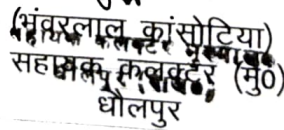 (भंवरलाल कांसोटिया)
सहायक कलक्टर (मु0)
धौलपुर